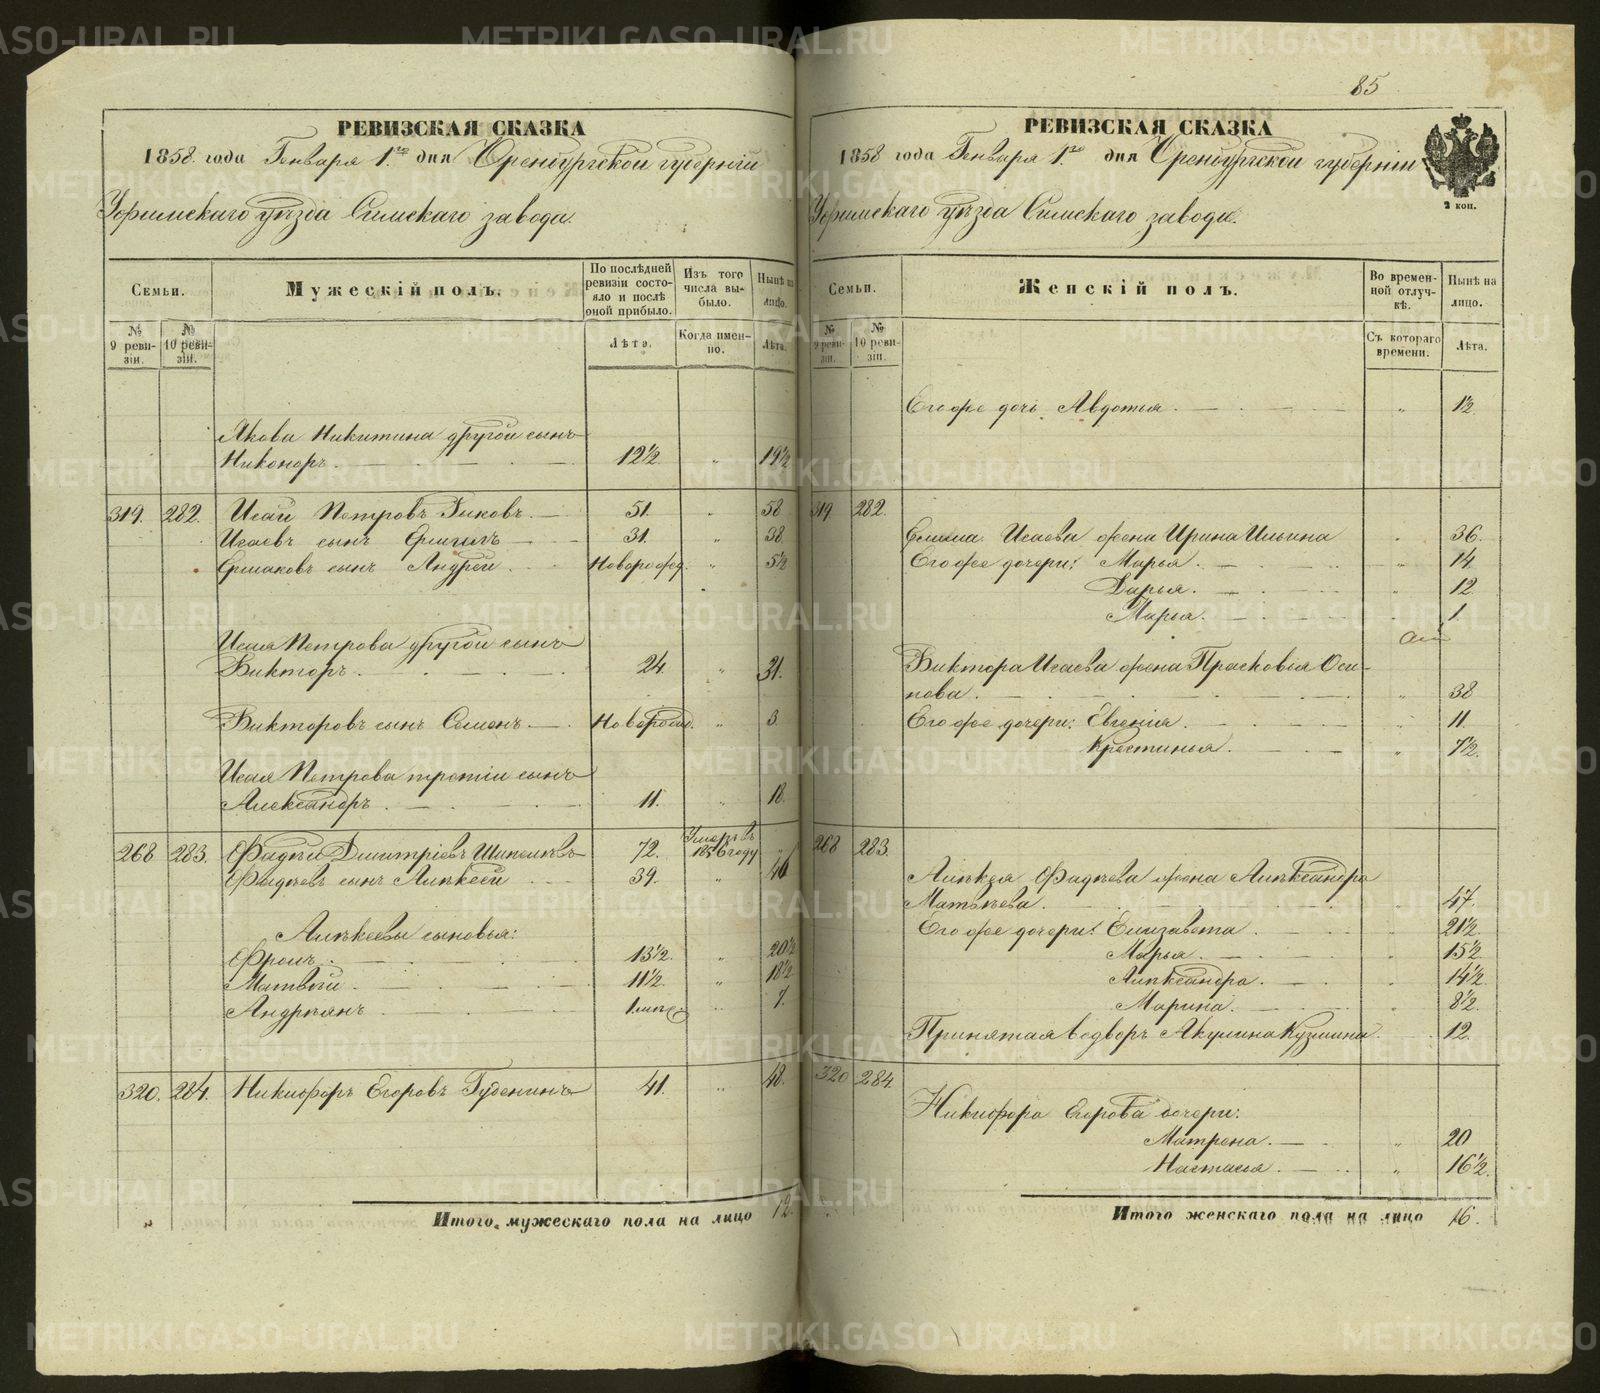 85
РЕВИЗСКАЯ СКАЗКА
1858 года Генваря 1го дня Оренбургской губерніи
Уфимскаго уѣзда Симскаго завода.
Семьи.
Мужескій полъ.
По послѣдней ревизіи состояло и послѣ оной прибыло.
Изъ того числа выбыло.
Нынѣ на лицо.
№ 9 ревизіи.
№ 10 ревизіи.
Лѣта.
Когда именно.
Лѣта.
Якова Никитина другой сынъ
Никоноръ. 12½ „ 19½
319. 282. Исай Петровъ Гиковъ. 51. „ 58
Исаевъ сынъ 31. „ 38.
Ермаковъ сынъ Андрей Новорожд. „ 5½
Исая Петрова другой сынъ
Викторъ. 24. „ 31.
Викторовъ сынъ Семенъ Новорожд. „ 3
Исая Петрова третій сынъ
Александръ. 11. „ 18.
268 283. Фадѣй Дмитріевъ 72. Умеръ въ 1856 году „
Фадѣевъ сынъ Алѣксей 39. „ 46
Алѣксѣевы сыновья:
Фролъ. 13½. „ 20½
Матвей 11½. „ 18½
Андреянъ 7.
320. 284. Никифоръ Егоровъ Гуденинъ 41. „ 48.
Итого мужескаго пола на лицо 12.
РЕВИЗСКАЯ СКАЗКА
1858 года Генваря 1го дня Оренбургской губерніи
Уфимскаго уѣзда Симскаго завода.
2 коп.
Семьи.
Женскій полъ.
Во временной отлучкѣ.
Нынѣ на лицо.
№ 9 ревизіи.
№ 10 ревизіи.
Съ котораго времени.
Лѣта.
Его же дочь Авдотья. „ 1½
319 282. Исаева жена Ирина Ильина „ 36.
Его же дочери: Марья. „ 14
Дарья. „ 12
Марья. „ 1
Виктора Исаева жена Прасковья Оси-
пова. „ 38
Его же дочери: Евгенія. „ 11.
Крестинья. „ 7½.
268 283.
Алѣксея Фадѣева жена Алѣксандра
Матвѣева. „ 47.
Его же дочери: Елизавета „ 21½.
Марья. „ 15½
Алѣксандра. „ 14½
Марина. „ 8½.
Принятая Акулина Кузмина. 12.
320 284.
Никифора Егорова дочери:
Матрена. „ 20
Настасья. „ 16½.
Итого женскаго пола на лицо 16.
METRIKI.GASO-URAL.RU